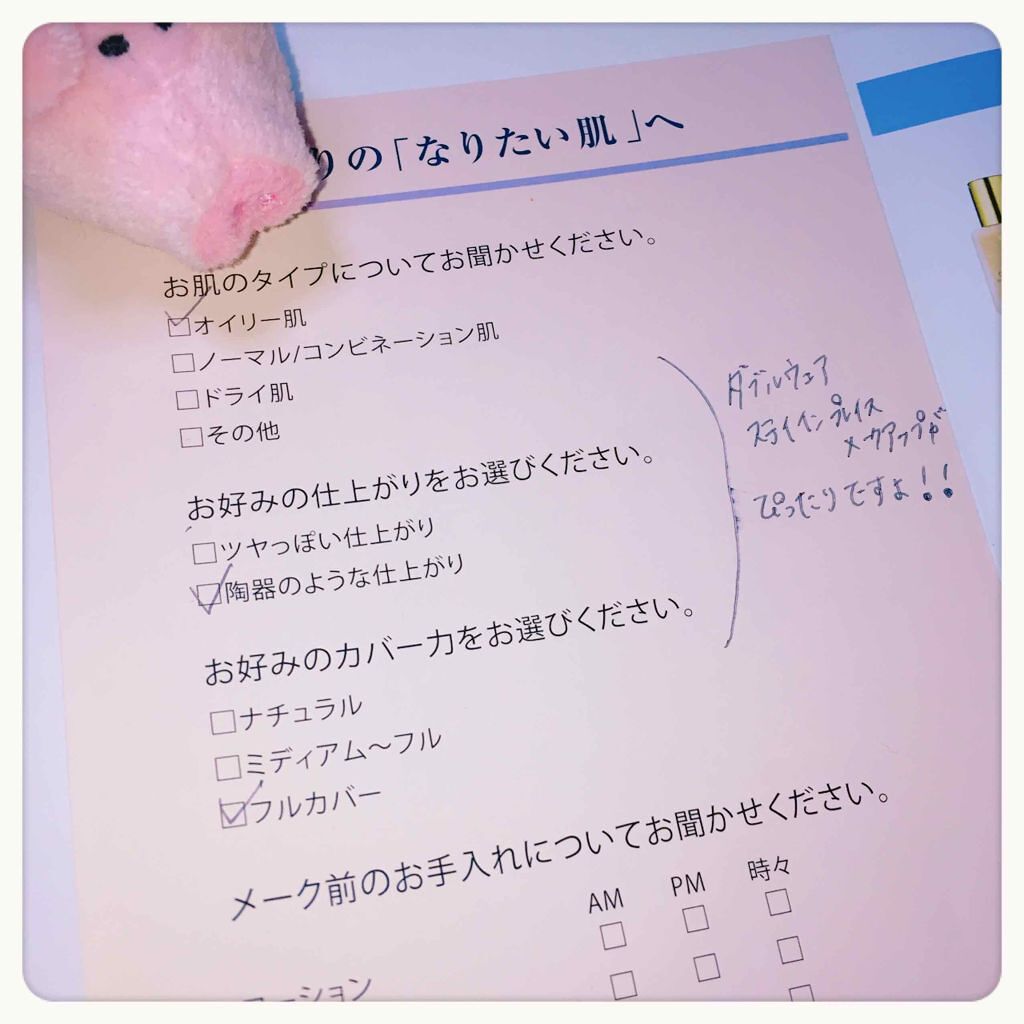 りの「なりたい肌」へ
お肌のタイプについてお聞かせください。
オイリー肌
ノーマル/コンビネーション肌
ドライ肌
その他
お好みの仕上がりをお選びください。
ツヤっぽい仕上がり
陶器のような仕上がり
お好みのカバー力をお選びください。
ナチュラル
ミディアム〜フル
フルカバー
メーク前のお手入れについてお聞かせください。
AM PM 時々
ーション
ダブルウェア
ステイインプレイス
メークアップが
ぴったりですよ!!